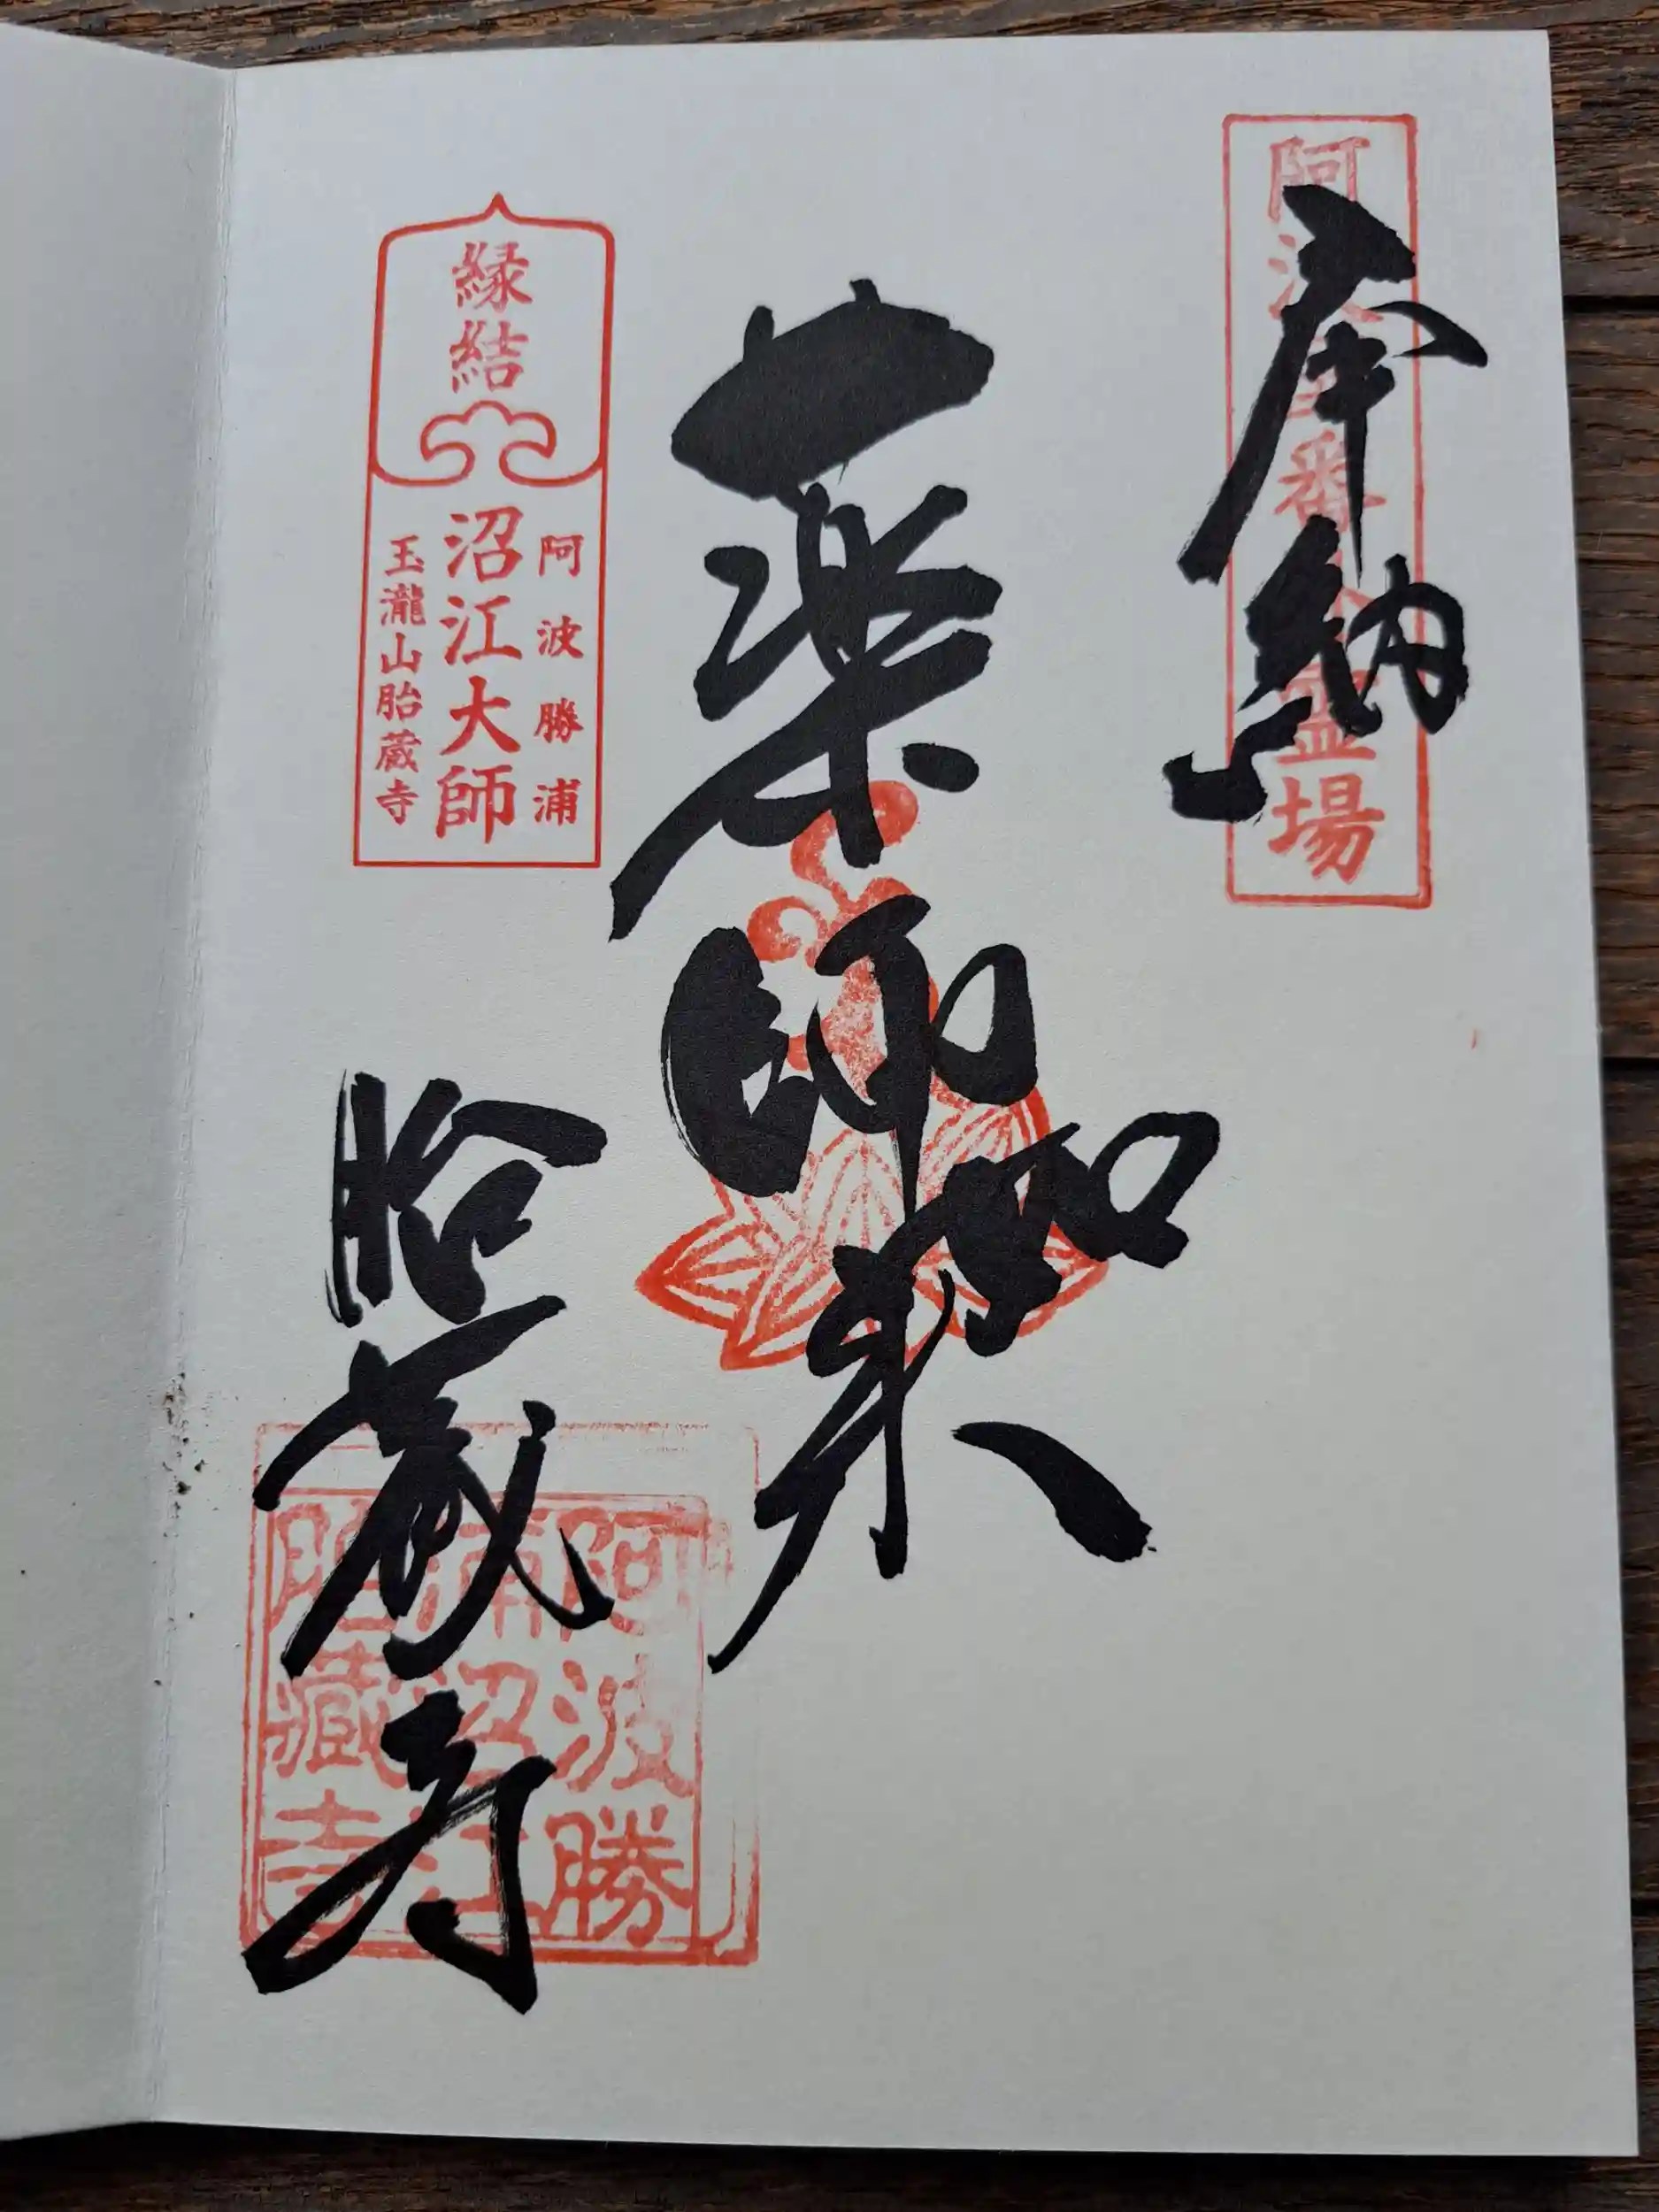 奉納
薬師如来
胎蔵寺
縁結
阿波勝浦
沼江大師
玉瀧山胎蔵寺
阿波勝
浦沼江
胎藏寺